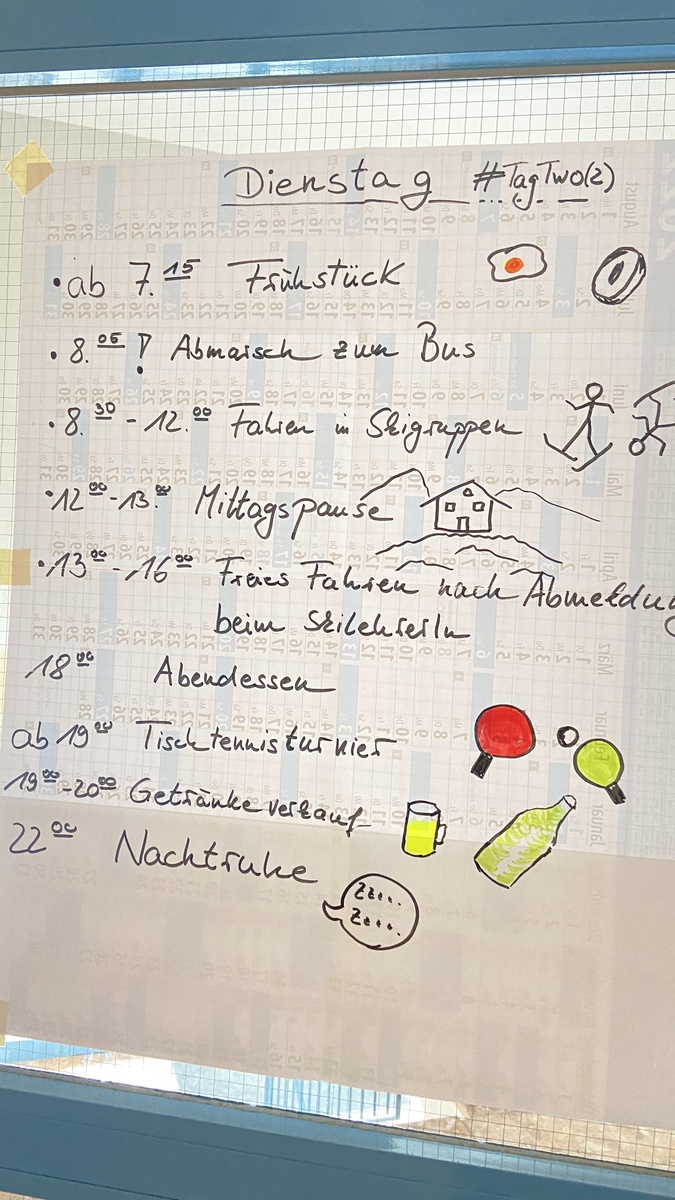 Dienstag #TagTwo(2)
• ab 7.15 Frühstück
• 8.05 ! Abmarsch zum Bus
• 8.30 - 12.00 Fahren in Skigruppen
• 12.00 - 13.00 Mittagspause
• 13.00 - 16.00 Freies Fahren nach Abmeldu
beim Skilehrerln
18.00 Abendessen
ab 19.00 Tischtennisturnier
19.00 - 20.00 Getränkeverkauf
22.00 Nachtruhe
Zz....
Zz....